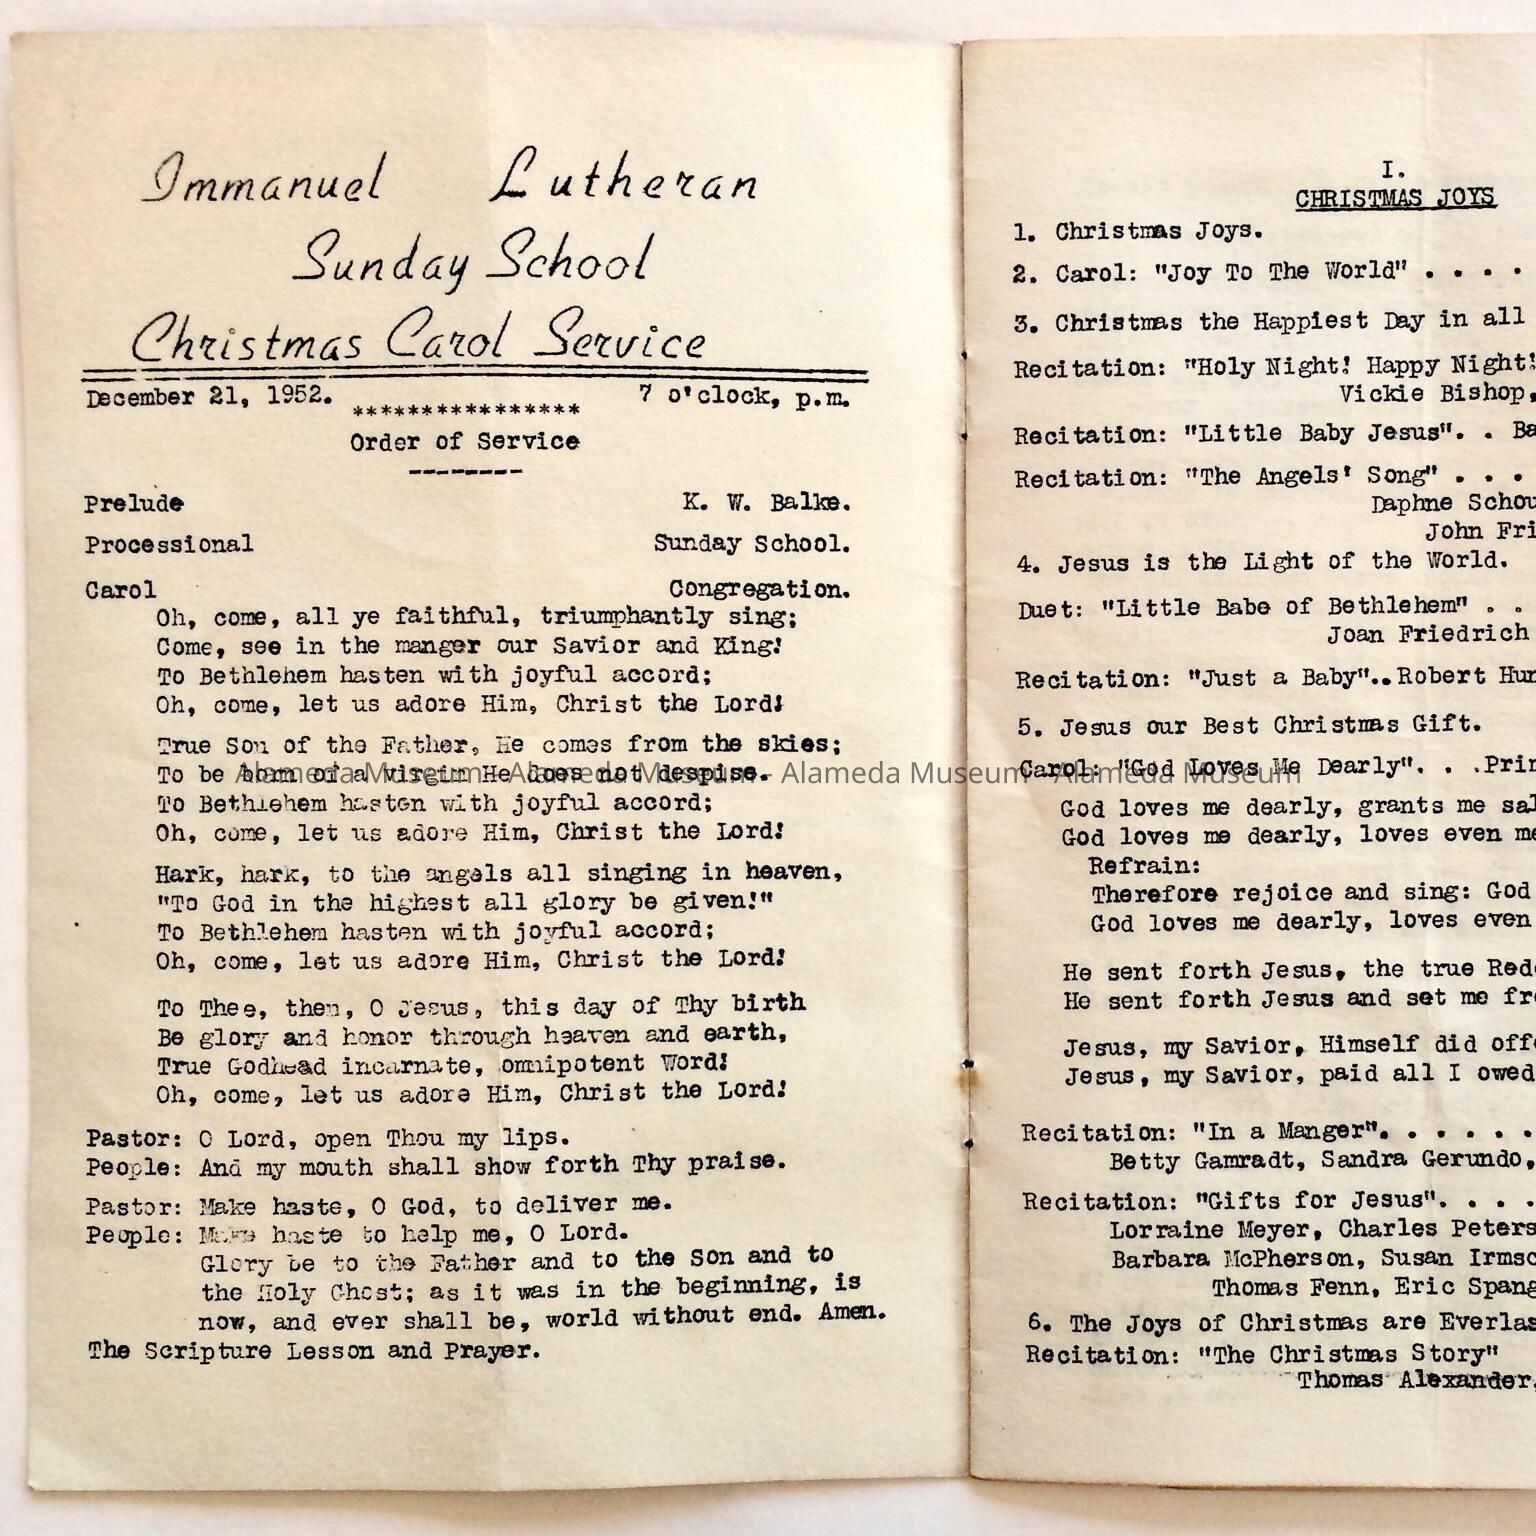 Immanuel Lutheran
Sunday School
Christmas Carol Service
December 21, 1952. 7 o'clock, p.m.
****************
Order of Service
--------
Prelude K. W. Balke.
Processional Sunday School.
Carol Congregation.
Oh, come, all ye faithful, triumphantly sing;
Come, see in the manger our Savior and King!
To Bethlehem hasten with joyful accord;
Oh, come, let us adore Him, Christ the Lord!
True Son of the Father, He comes from the skies;
To be born of a virgin He does not despise.
To Bethlehem hasten with joyful accord;
Oh, come, let us adore Him, Christ the Lord!
Hark, hark, to the angels all singing in heaven,
"To God in the highest all glory be given!"
To Bethlehem hasten with joyful accord;
Oh, come, let us adore Him, Christ the Lord!
To Thee, then, O Jesus, this day of Thy birth
Be glory and honor through heaven and earth,
True Godhead incarnate, omnipotent Word!
Oh, come, let us adore Him, Christ the Lord!
Pastor: O Lord, open Thou my lips.
People: And my mouth shall show forth Thy praise.
Pastor: Make haste, O God, to deliver me.
People: Make haste to help me, O Lord.
Glory be to the Father and to the Son and to
the Holy Ghost; as it was in the beginning, is
now, and ever shall be, world without end. Amen.
The Scripture Lesson and Prayer.
I.
CHRISTMAS JOYS
1. Christmas Joys.
2. Carol: "Joy To The World" . . . .
3. Christmas the Happiest Day in all
Recitation: "Holy Night! Happy Night!
Vickie Bishop,
Recitation: "Little Baby Jesus". . Ba
Recitation: "The Angels' Song" . . .
Daphne Schou
John Fri
4. Jesus is the Light of the World.
Duet: "Little Babe of Bethlehem" . .
Joan Friedrich
Recitation: "Just a Baby"..Robert Hun
5. Jesus our Best Christmas Gift.
Carol: "God Loves Me Dearly". . .Prim
God loves me dearly, grants me sal
God loves me dearly, loves even me
Refrain:
Therefore rejoice and sing: God
God loves me dearly, loves even
He sent forth Jesus, the true Rede
He sent forth Jesus and set me fre
Jesus, my Savior, Himself did offe
Jesus, my Savior, paid all I owed
Recitation: "In a Manger". . . . . .
Betty Gamradt, Sandra Gerundo,
Recitation: "Gifts for Jesus". . . .
Lorraine Meyer, Charles Peters
Barbara McPherson, Susan Irmsc
Thomas Fenn, Eric Spang
6. The Joys of Christmas are Everlas
Recitation: "The Christmas Story"
Thomas Alexander,
Alameda Museum - Alameda Museum - Alameda Museum - Alameda Museum